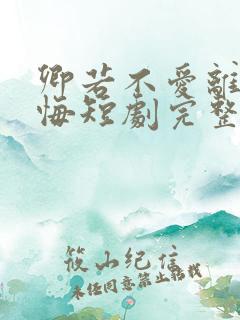 卿若不愛離
悔短劇完整
筱山纪信
未经同意禁止转载